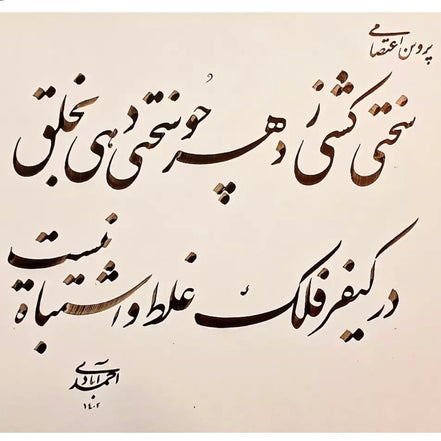 پروین اعتصامی
سختی کشی ز دهر چو سختی دهی بخلق
در کیفر فلک غلط و اشتباه نیست
احمدآبادی
۱۴۰۲